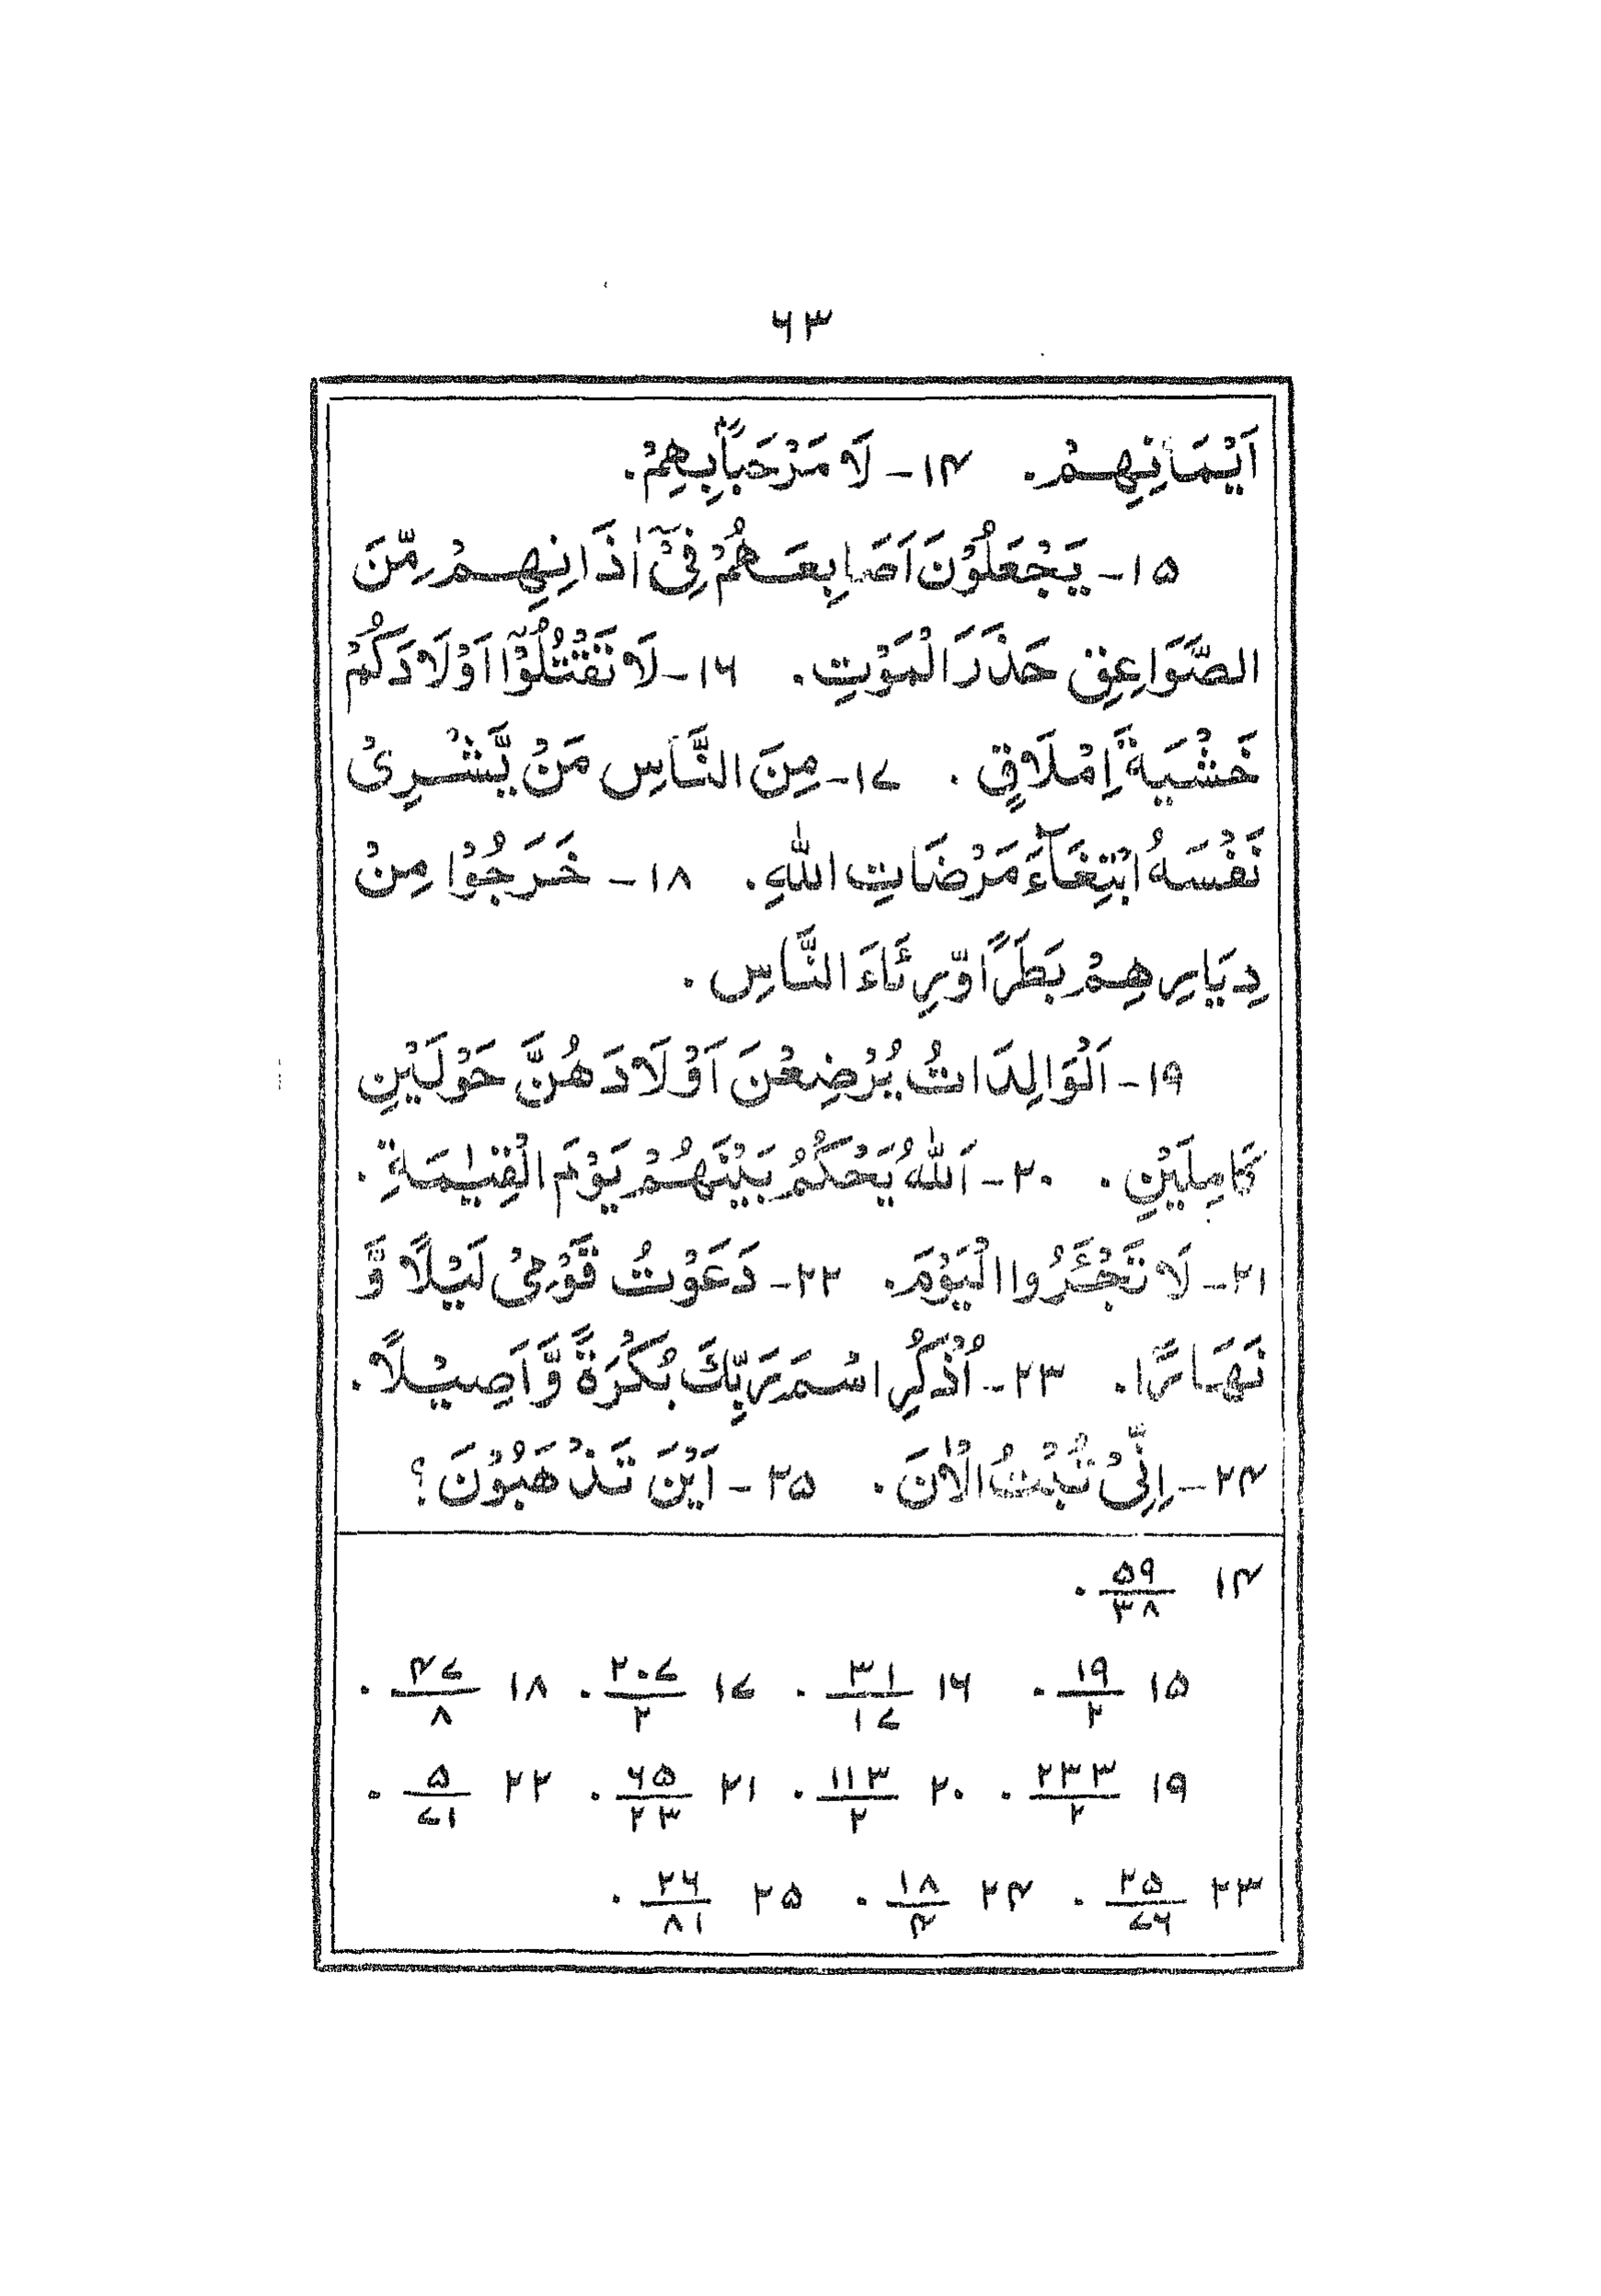 ۶۳
اَیْمَانِهِمْ. ۱۴- لَا مَرْحَبًۢا بِهِمْ.
۱۵- یَجْعَلُوْنَ اَصَابِعَهُمْ فِیْۤ اٰذَانِهِمْ مِّنَ
الصَّوَاعِقِ حَذَرَ الْمَوْتِ. ۱۶- لَا تَقْتُلُوْۤا اَوْلَادَكُمْ
خَشْیَةَ اِمْلَاقٍ. ۱۷- مِنَ النَّاسِ مَنْ یَّشْرِیْ
نَفْسَهُ ابْتِغَآءَ مَرْضَاتِ اللّٰهِ. ۱۸- خَرَجُوْا مِنْ
دِیَارِهِمْ بَطَرًا وَّرِئَاءَ النَّاسِ.
۱۹- اَلْوَالِدَاتُ یُرْضِعْنَ اَوْلَادَهُنَّ حَوْلَیْنِ
كَامِلَیْنِ. ۲۰- اَللّٰهُ یَحْكُمُ بَیْنَهُمْ یَوْمَ الْقِیٰمَةِ.
۲۱- لَا تَجْـَٔرُوا الْیَوْمَ. ۲۲- دَعَوْتُ قَوْمِیْ لَیْلًا وَّ
نَهَارًا. ۲۳- اُذْكُرِ اسْمَ رَبِّكَ بُكْرَةً وَّاَصِیْلًا.
۲۴- اِنِّیْ تُبْتُ الْاٰنَ. ۲۵- اَیْنَ تَذْهَبُوْنَ؟
۱۴ ۵۹/۳۸.
۱۵ ۱۹/۲. ۱۶ ۳۱/۱۷. ۱۷ ۲۰۷/۲. ۱۸ ۴۷/۸.
۱۹ ۲۳۳/۲. ۲۰ ۱۱۳/۲. ۲۱ ۶۵/۲۳. ۲۲ ۵/۷۱.
۲۳ ۲۵/۷۶. ۲۴ ۱۸/۴. ۲۵ ۲۶/۸۱.